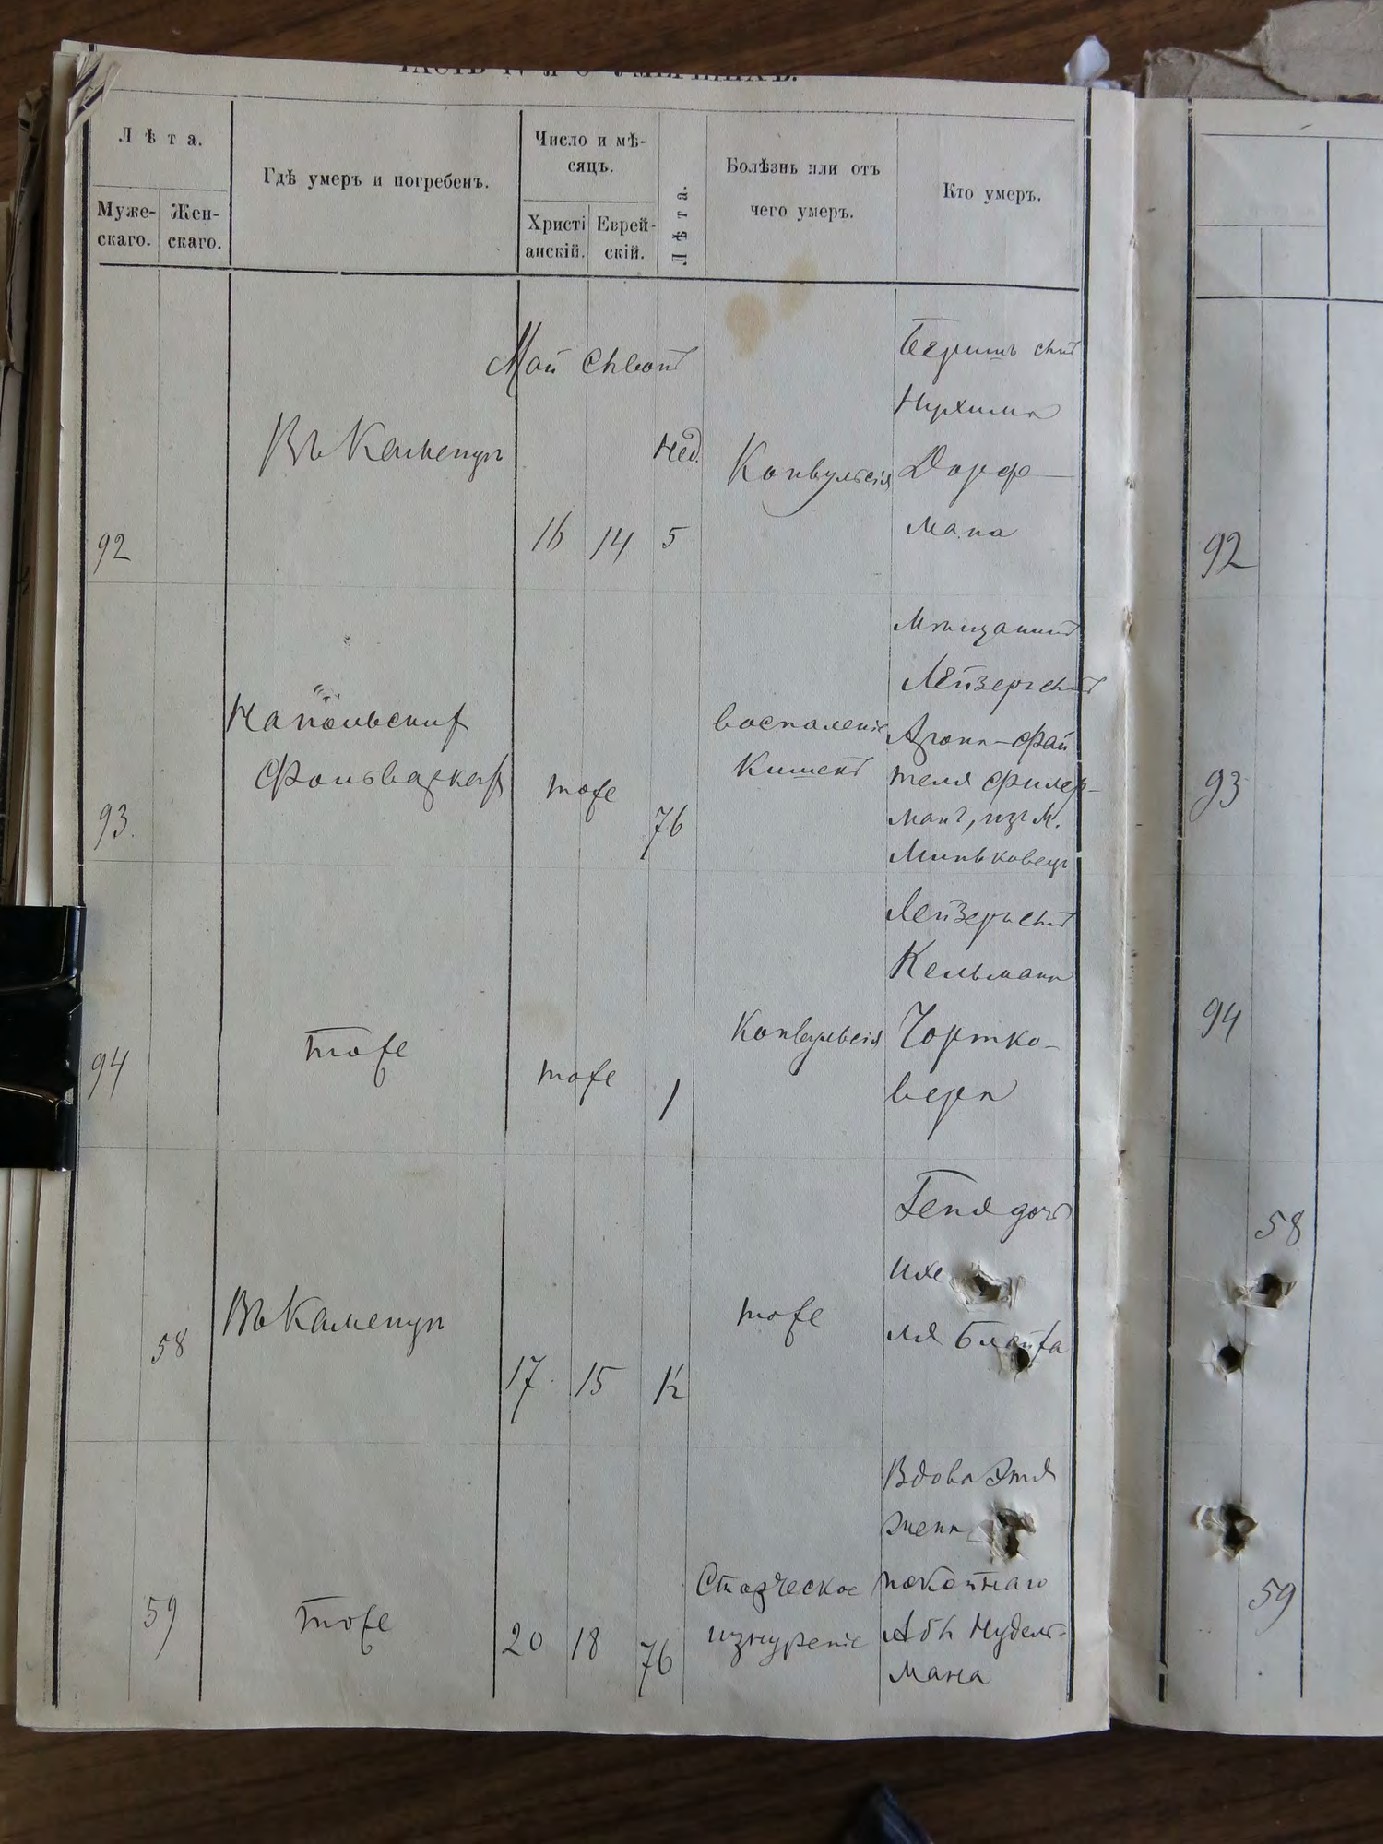 Лѣта.
Муже-
скаго.
Жен-
скаго.
Гдѣ умеръ и погребенъ.
Число и мѣ-
сяцъ.
Христі
анскій.
Еврей-
скій.
Лѣта.
Болѣзнь или отъ
чего умеръ.
Кто умеръ.
Май
92
Въ Каменцѣ
16
14
Нед.
5
Конвульсія
Беришъ сынъ
Нухима
Дорф-
мана
92
93.
Напольских
Фольваркахъ
тоже
76
воспаленіе
Кишекъ
Мѣщанинъ
Лейзеръ сынъ
Арона-Фай
теля Филер-
манъ, изъ М.
Миньковец
93
94
тоже
тоже
1
Конвульсія
Лейзеръ сынъ
Кельмана
Чортко-
вера
94
58
Въ Каменцѣ
17.
15
½
тоже
Геня дочь
Ихе
ля
58
59
тоже
20
18
76
Старческое
изнуреніе
Вдова Этя
жена
покойнаго
Абы Нудель-
мана
59